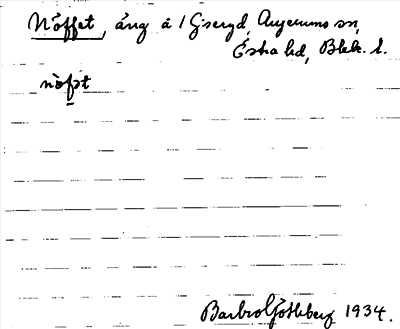 Nöffet, äng å 1 Gseryd, Augerums sn,
Östra hd, Blek. l.
nö̀fət
Barbro Götheberg 1934.